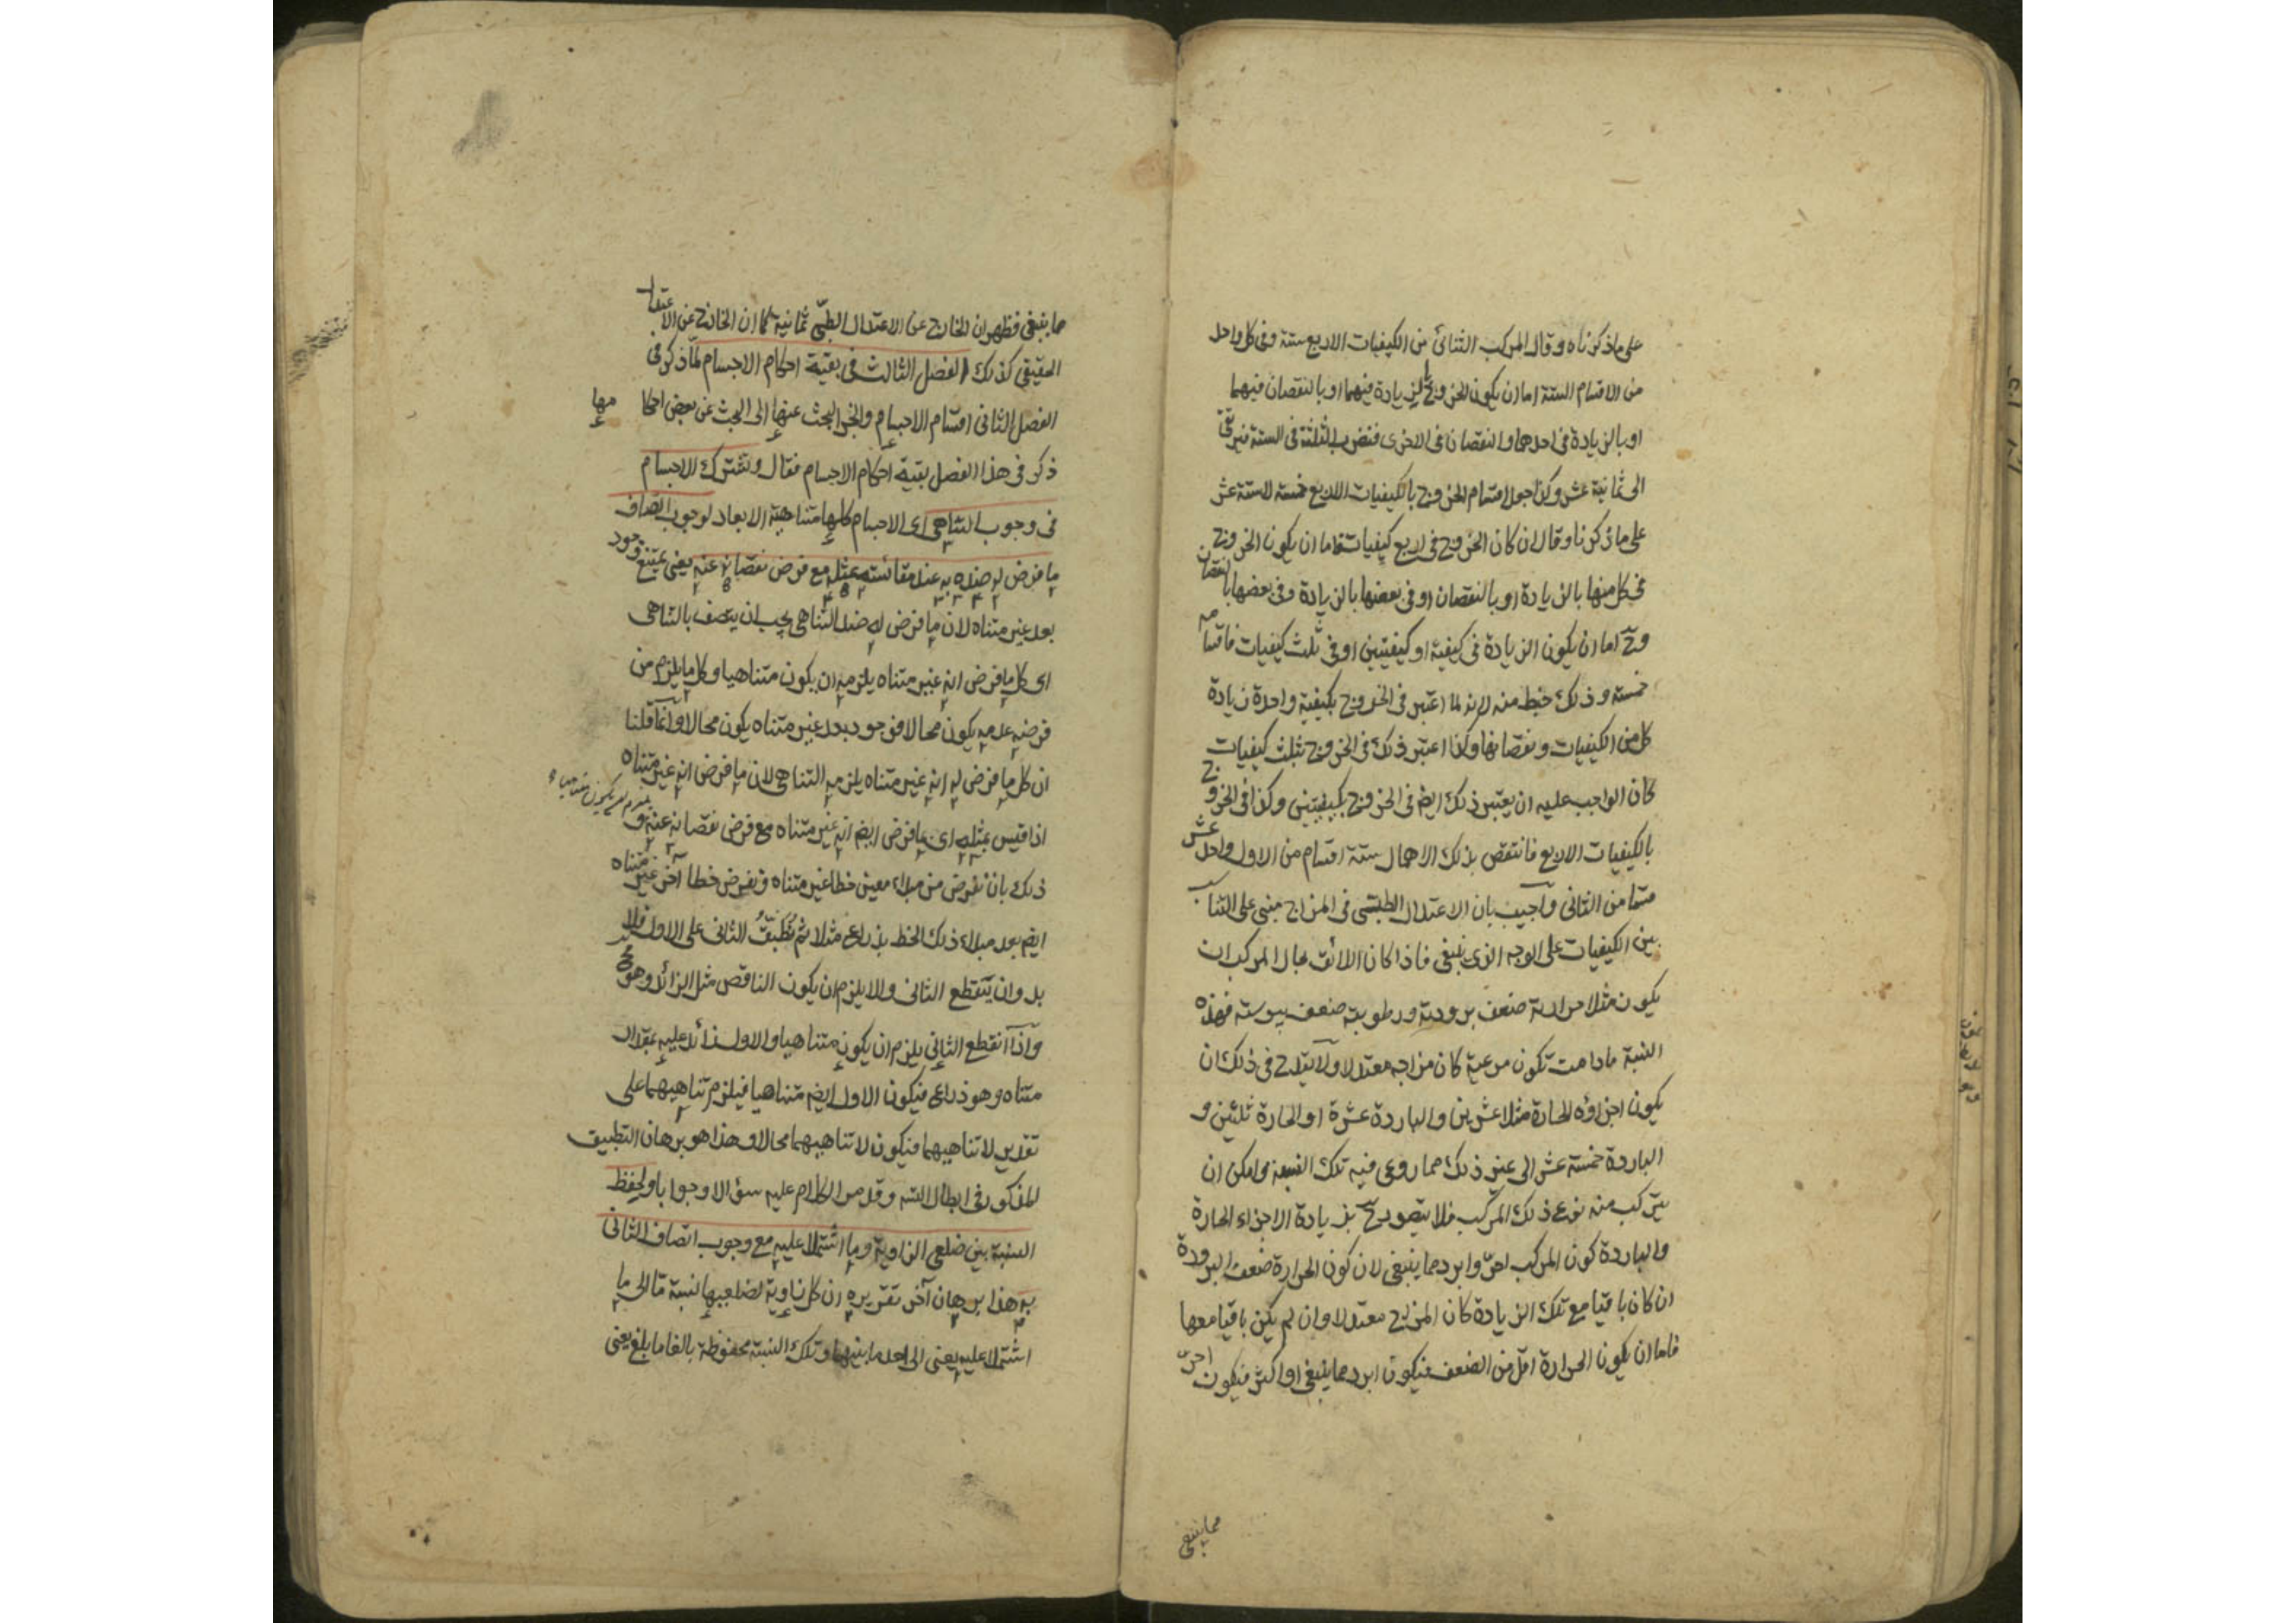 على ما ذكرناه وقال المركب الثنائى من الكيفيات الاربع ستة وفى كل واحد
من الاقسام الستة اما ان يكون الخروج بالزيادة فيهما او بالنقصان فيهما
او بالزيادة فى احدهما والنقصان فى الاخرى فنضرب الثلثة فى الستة فيرتقى
الى ثمانية عشر وكذا جعل اقسام الخروج بالكيفيات الاربع خمسة لا ستة عشر
على ما ذكرنا وقال ان كان الخروج فى اربع كيفيات فاما ان يكون الخروج
فى كل منها بالزيادة او بالنقصان او فى بعضها بالزيادة وفى بعضها بالنقصان
وح اما ان يكون الزيادة فى كيفية او كيفيتين او فى ثلث كيفيات فاقسامه
خمسة وذلك خبط منه لانه لما اعتبر فى الخروج بكيفية واحدة زيادة
كل من الكيفيات ونقصانها وكذا اعتبر ذلك فى الخروج بثلث كيفيات
كان الواجب عليه ان يعتبر ذلك ايضا فى الخروج بكيفيتين وكذا فى الخروج
بالكيفيات الاربع فانتقص بذلك الاهمال ستة اقسام من الاول واحد عشر
قسما من الثانى وآجيب بان الاعتدال الطبى فى المزاج مبنى على التناسب
بين الكيفيات على الوجه الذى ينبغى فاذا كان اللائق بحال المركب ان
يكون مثلا حرارته ضعف برودته ورطوبته ضعف يبوسته فهذه
النسبة ما دامت تكون مرعية كان مزاجه معتدلا ولا يقدح فى ذلك ان
يكون اجزاؤه الحارة مثلا عشرين والباردة عشرة او الحارة ثلثين و
الباردة خمسة عشر الى غير ذلك مما روعى فيه تلك النسبة وامكن ان
يتركب منه نوع ذلك المركب فلا يتصور ح بزيادة الاجزاء الحارة
والباردة كون المركب احر وابرد مما ينبغى لان كون الحرارة ضعف البرودة
ان كان باقيا مع تلك الزيادة كان المزاج معتدلا وان لم يكن باقيا معها
فاما ان يكون الحرارة اقل من الضعف فيكون ابرد مما ينبغى او اكثر فيكون احر
مما ينبغى
مما ينبغى فظهر ان الخارج عن الاعتدال الطبى ثمانية كما ان الخارج عن الاعتدال
الحقيقى كذلك الفصل الثالث فى بقية احكام الاجسام لما ذكر فى
الفصل الثانى اقسام الاجسام وانجر البحث عنها الى البحث عن بعض احكامها
ذكر فى هذا الفصل بقية احكام الاجسام فقال وتشترك الاجسام
فى وجوب التناهى اى الاجسام كلها متناهية الابعاد لوجوب اتصاف
ما فرض له ضده به عند مقائسته بمثله مع فرض نقصانه عنه يعنى يمتنع وجود
بعد غير متناه لان ما فرض له ضد التناهى يجب ان يتصف بالتناهى
اى كل ما فرض انه غير متناه يلزمه ان يكون متناهيا وكل ما يلزم من
فرضه عدمه يكون محالا فوجود بعد غير متناه يكون محالا وآنما قلنا
ان كل ما فرض له انه غير متناه يلزمه التناهى لان ما فرض انه غير متناه
اذا قيس بمثله اى بما فرض ايضا انه غير متناه مع فرض نقصانه عنه يلزم ان يكون متناهيا و
ذلك بان نفرض من مبداء معين خطا غير متناه ونفرض خطا آخر غير متناه
ايضا بعد مبداء ذلك الخط بذراع مثلا ثم نُطَبِّقُ الثانى على الاول فلا
بد وان ينقطع الثانى والا يلزم ان يكون الناقص مثل الزائد وهو مح
وآذا آنقطع الثانى يلزم ان يكون متناهيا والاول زائد عليه بمقدار
متناه وهو ذراع فيكون الاول ايضا متناهيا فيلزم تناهيهما على
تقدير لا تناهيهما فيكون لا تناهيهما محالا وهذا هو برهان التطبيق
المذكور فى ابطال التسه وقد مر الكلام عليه سؤالا وجوابا ولحفظ
النسبة بين ضلعى الزاوية وما اشتملا عليه مع وجوب اتصاف الثانى
به هذا برهان آخر تقريره ان كل زاوية لضلعيها نسبة ما الى ما
اشتملا عليه يعنى الى بعد ما بينهما وتلك النسبة محفوظة بالغا ما بلغ يعنى